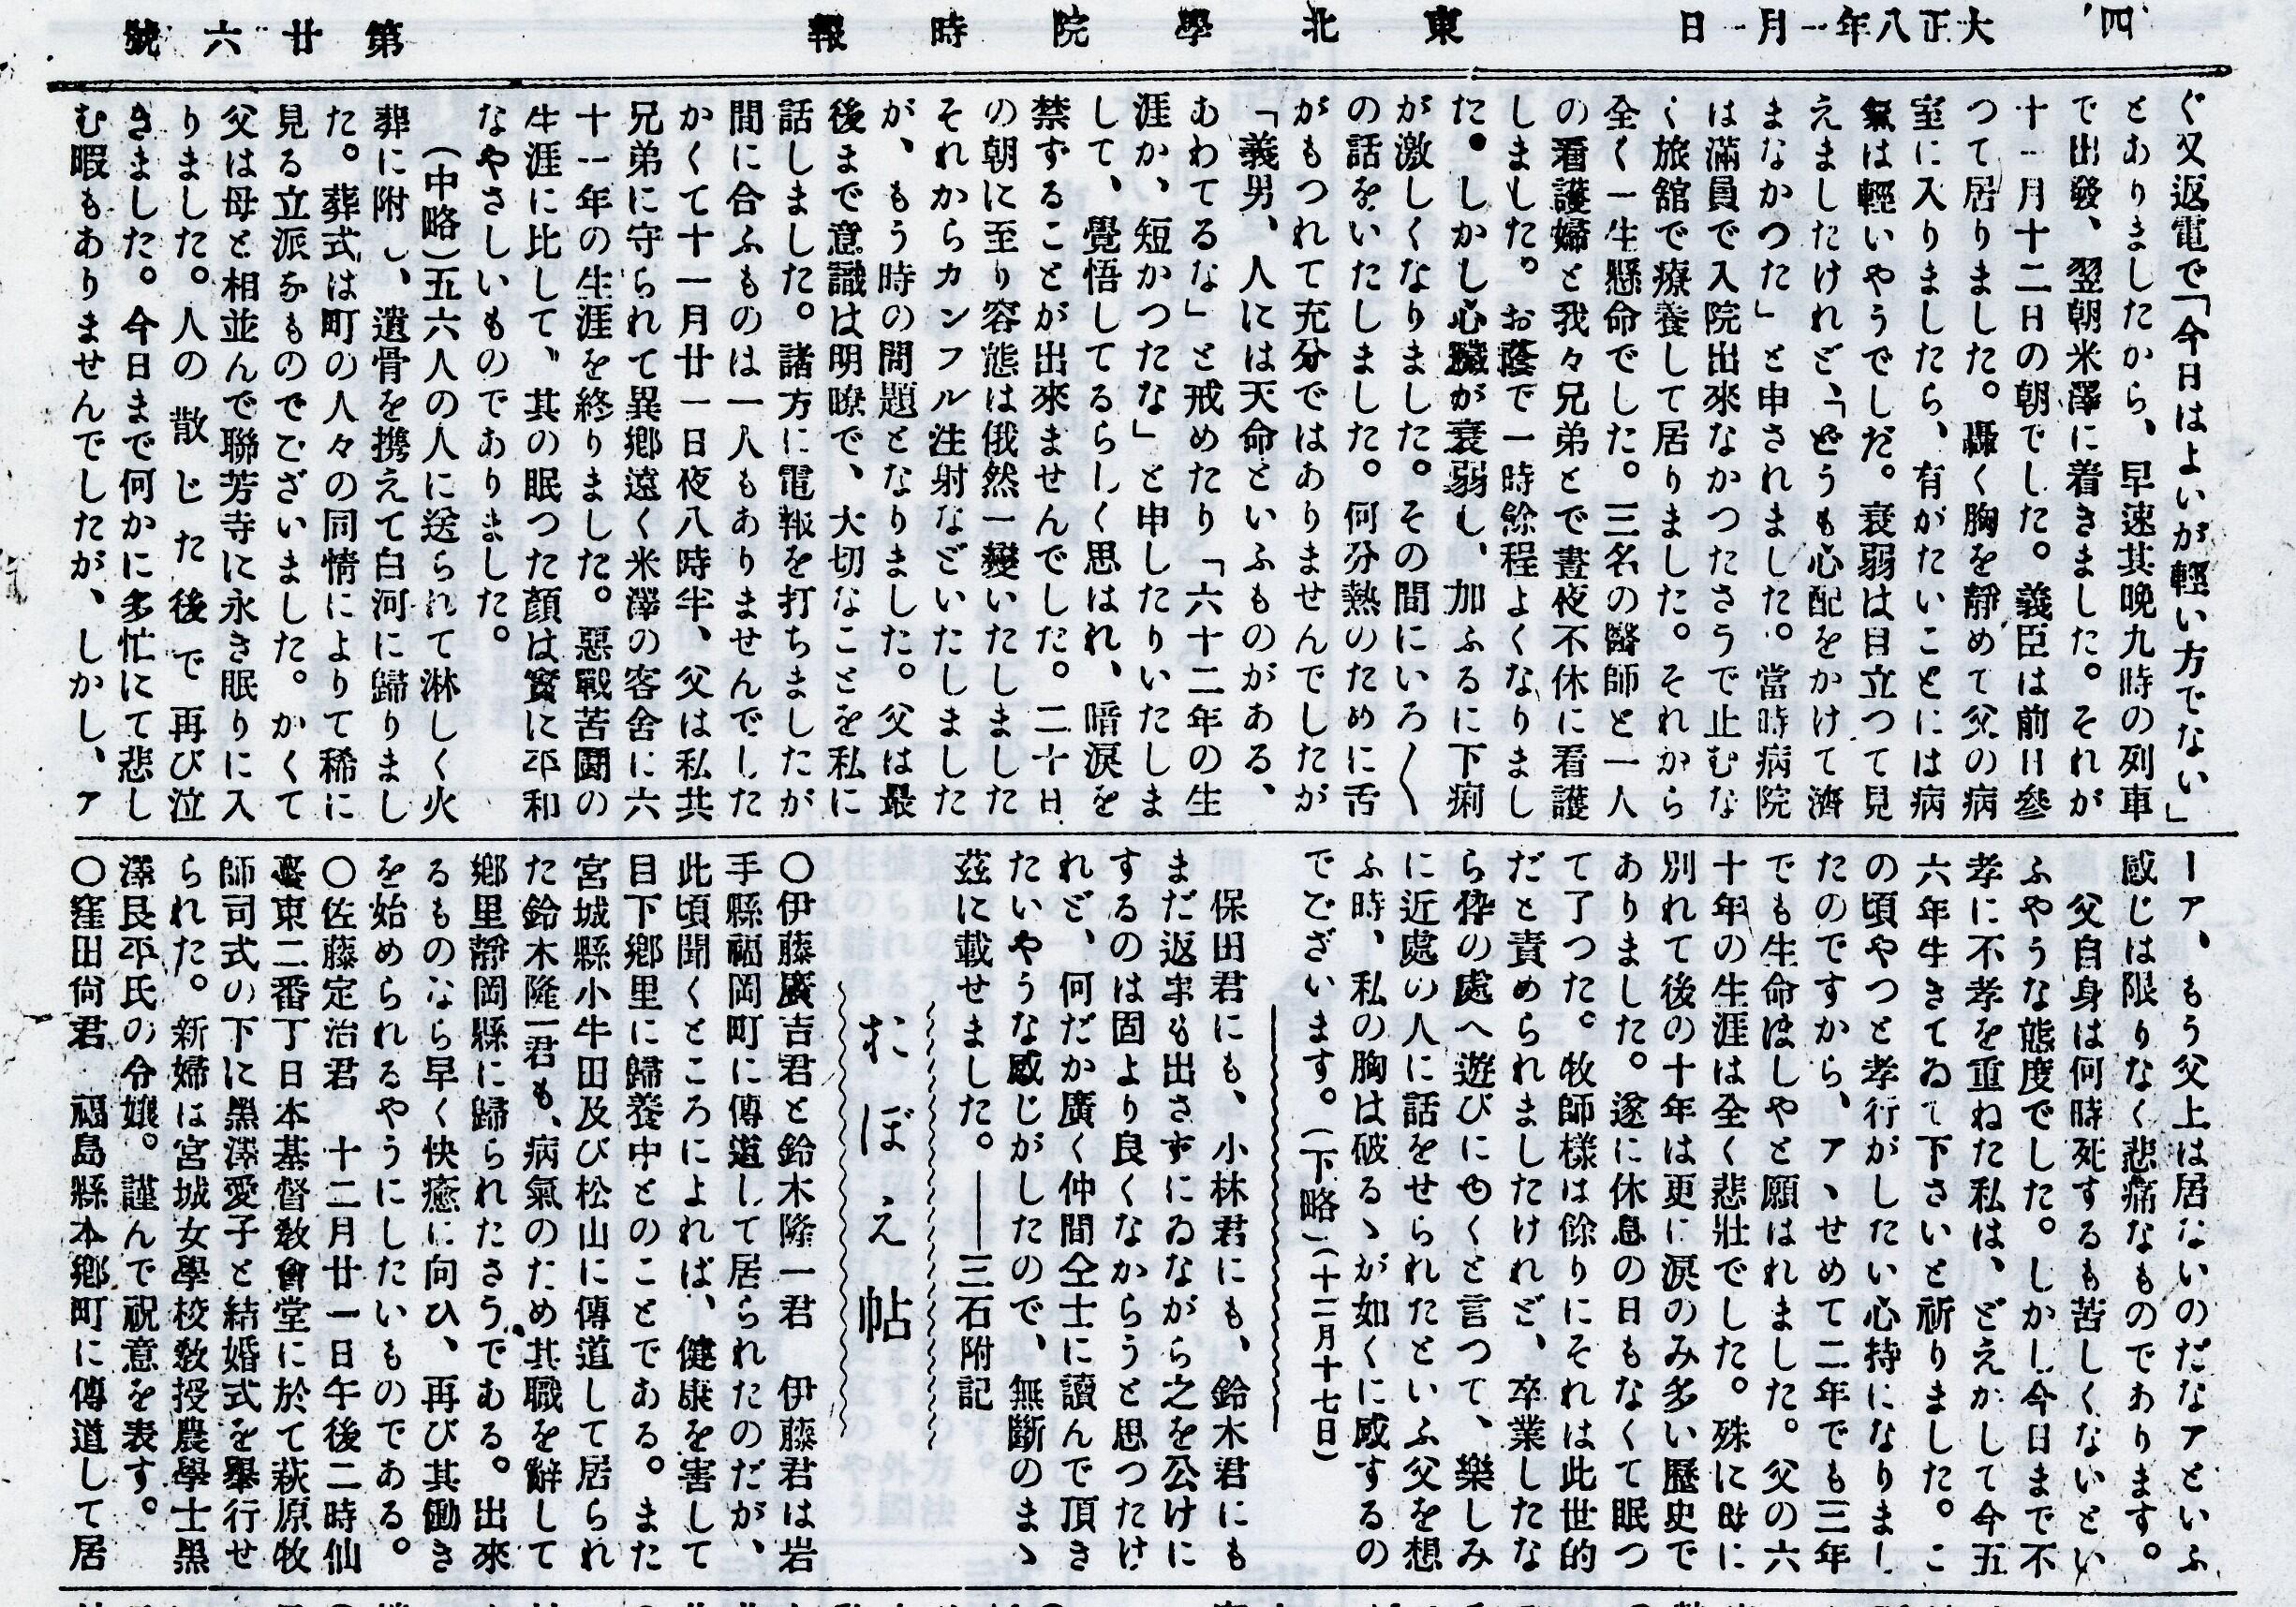 四
大正八年一月一日
東北學院時報
第廿六號
ぐ又返電で「今日はよいが輕い方でない」
とありましたから、早速其晩九時の列車
で出發、翌朝米澤に着きました。それが
十一月十二日の朝でした。義臣は前日參
つて居りました。轟く胸を靜めて父の病
室に入りましたら、有がたいことには病
氣は輕いやうでした。衰弱は目立つて見
えましたけれど、「どうも心配をかけて濟
まなかつた」と申されました。當時病院
は滿員で入院出來なかつたさうで止むな
く旅舘で療養して居りました。それから
全く一生懸命でした。三名の醫師と一人
の看護婦と我々兄弟とで晝夜不休に看護
しました。お蔭で一時餘程よくなりまし
た。しかし心臟が衰弱し、加ふるに下痢
が激しくなりました。その間にいろ〱
の話をいたしました。何分熱のために舌
がもつれて充分ではありませんでしたが
「義男、人には天命といふものがある、
あわてるな」と戒めたり「六十二年の生
涯か、短かつたな」と申したりいたしま
して、覺悟してるらしく思はれ、暗淚を
禁ずることが出來ませんでした。二十日
の朝に至り容態は俄然一變いたしました
それからカンフル注射などいたしました
が、もう時の問題となりました。父は最
後まで意識は明瞭で、大切なことを私に
話しました。諸方に電報を打ちましたが
間に合ふものは一人もありませんでした
かくて十一月廿一日夜八時半、父は私共
兄弟に守られて異鄕遠く米澤の客舍に六
十一年の生涯を終りました。惡戰苦鬪の
生涯に比して、其の眠つた顏は實に平和
なやさしいものでありました。
（中略）五六人の人に送られて淋しく火
葬に附し、遺骨を携えて白河に歸りまし
た。葬式は町の人々の同情によりて稀に
見る立派なものでございました。かくて
父は母と相並んで聯芳寺に永き眠りに入
りました。人の散じた後で再び泣
きました。今日まで何かに多忙にて悲し
む暇もありませんでしたが、しかし、ア
ーア、もう父上は居ないのだなアといふ
感じは限りなく悲痛なものであります。
父自身は何時死するも苦しくないとい
ふやうな態度でした。しかし今日まで不
孝に不孝を重ねた私は、どえかして今五
六年生きてゐて下さいと祈りました。こ
の頃やつと孝行がしたい心持になりまし
たのですから、アヽせめて二年でも三年
でも生命ほしやと願はれました。父の六
十年の生涯は全く悲壯でした。殊に母に
別れて後の十年は更に淚のみ多い歷史で
ありました。遂に休息の日もなくて眠つ
て了つた。牧師樣は餘りにそれは此世的
だと責められましたけれど、卒業したな
ら伜の處へ遊びにゆくと言つて、樂しみ
に近處の人に話をせられたといふ父を想
ふ時、私の胸は破るヽが如くに感するの
でございます。（下略）（十二月十七日）
保田君にも、小林君にも、鈴木君にも
まだ返事も出さずにゐながら之を公けに
するのは固より良くなからうと思つたけ
れど、何だか廣く仲間仝士に讀んで頂き
たいやうな感じがしたので、無斷のまヽ
茲に載せました。――三石附記
おぼえ帖
〇伊藤廣吉君と鈴木隆一君　伊藤君は岩
手縣福岡町に傳道して居られたのだが、
此頃聞くところによれば、健康を害して
目下鄕里に歸養中とのことである。また
宮城縣小牛田及び松山に傳道して居られ
た鈴木隆一君も、病氣のため其職を辭して
鄕里靜岡縣に歸られたさうである。出來
るものなら早く快癒に向ひ、再び其働き
を始められるやうにしたいものである。
〇佐藤定治君　十二月廿一日午後二時仙
臺東二番丁日本基督敎會堂に於て萩原牧
師司式の下に黑澤愛子と結婚式を擧行せ
られた。新婦は宮城女學校敎授農學士黑
澤良平氏の令孃。謹んで祝意を表す。
〇窪田尙君　福島縣本鄕町に傳道して居